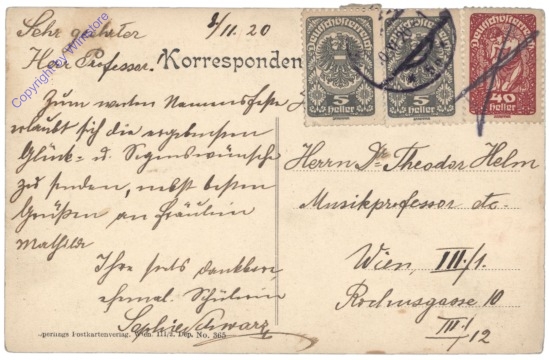 Sehr geehrter
Herr Professor.
2/11.20
Korresponden
Zum werten Namensfeste
erlaubt sich die ergebensten
Glück- u. Segenswünsche
zu senden, nebst besten
Grüßen an Fräulein
Mathilde
Ihre stets dankbare
ehemal. Schülerin
Sophie Schwarz
Deutschösterreich
5
Heller
5
Heller
Deutschösterreich
40
Heller
Herrn Dr. Theodor Helm
Musikprofessor etc.
Wien, III./1
Rochusgasse 10
III.
12
perlings Postkartenverlag, Wien, III/2. Dep. No. 365
Copyright by Winstore